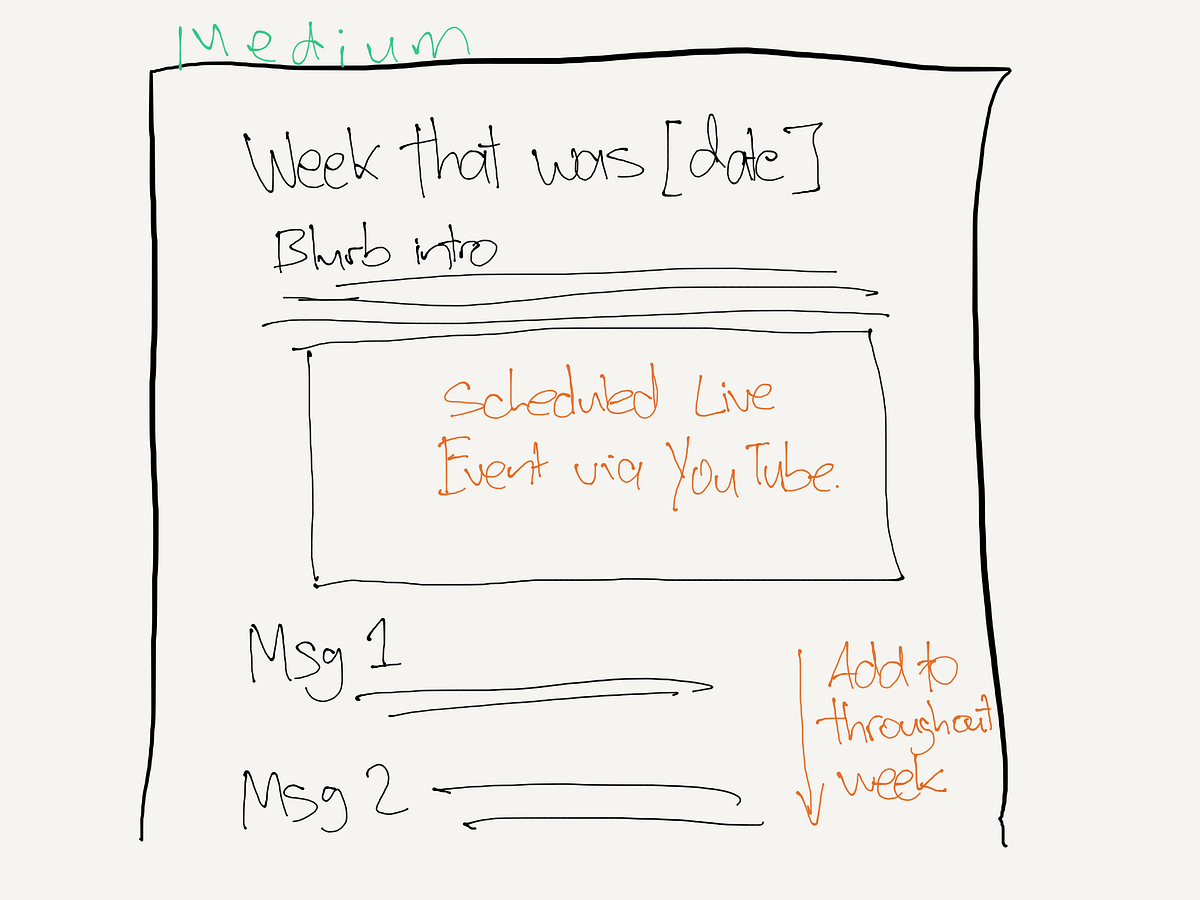 Medium
Week that was [date]
Blurb intro
Scheduled Live
Event via YouTube.
Msg 1
Add to
throughout
week
Msg 2